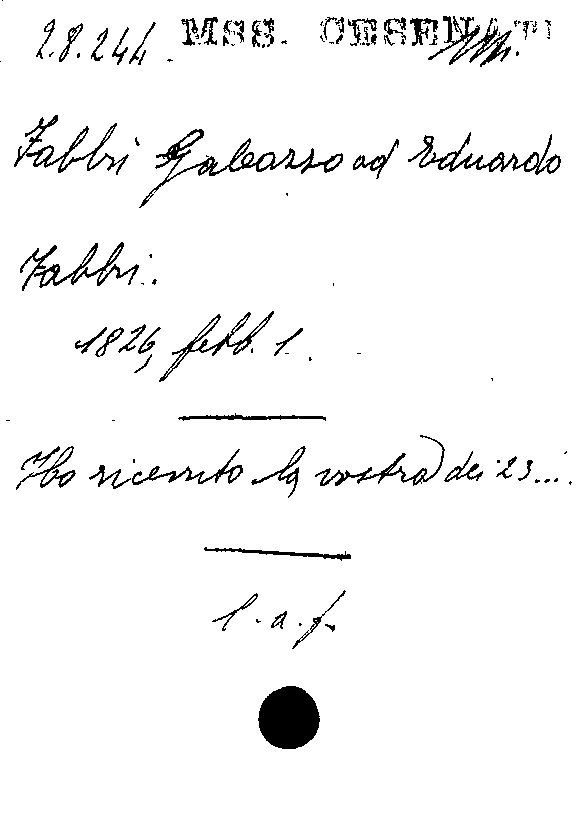 2.8.244. MSS. CESENATI
Fabbri Galeazzo ad Eduardo
Fabbri.
1826, febb. 1.
Ho ricevuto la vostra dei 23....
l. a. f.